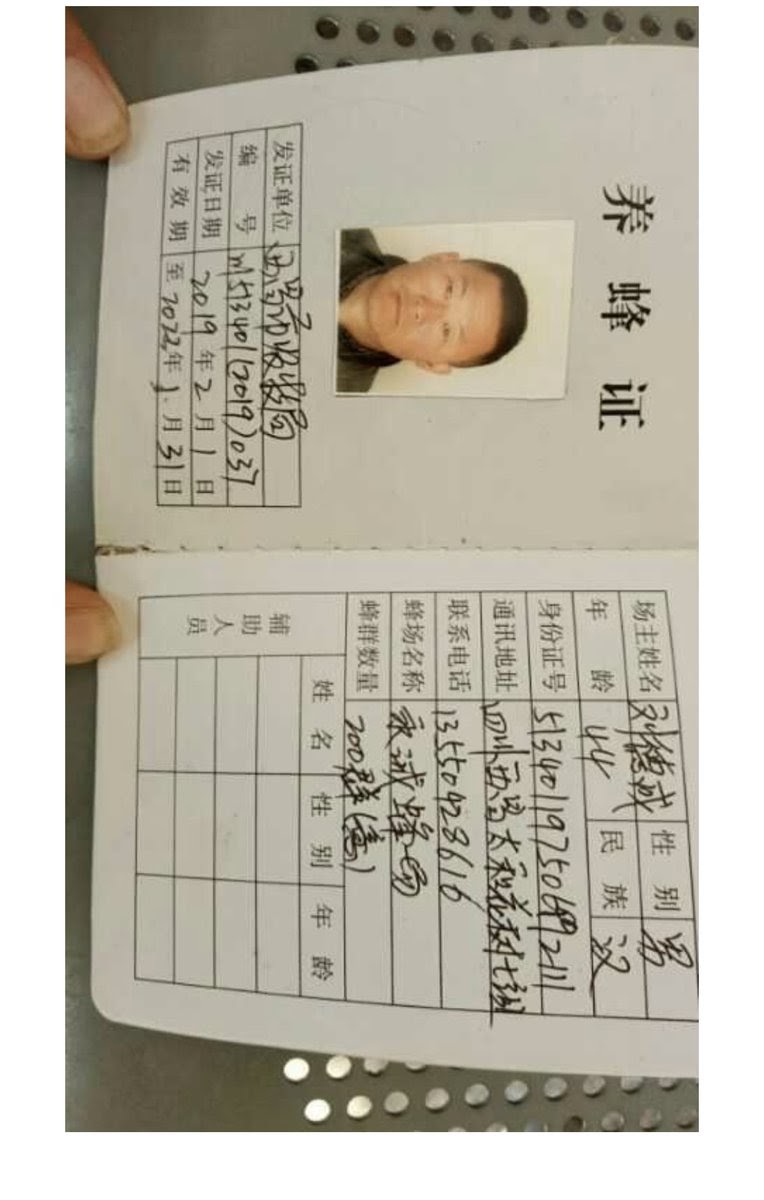 养蜂证
发证单位
编 号 川513401(2019)037
发证日期 2019年2月1日
有效期 至2022年1月31日
场主姓名 刘德诚 性别 男
年 龄 44 民族 汉
身份证号
通讯地址 四川西昌太和
联系电话 13550428616
蜂场名称 永诚蜂
蜂群数量 200群
辅助人员 姓名 性别 年龄